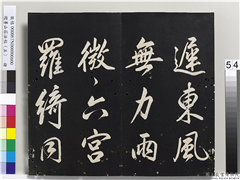 遲東風
無力雨
微六宮
羅綺同
54